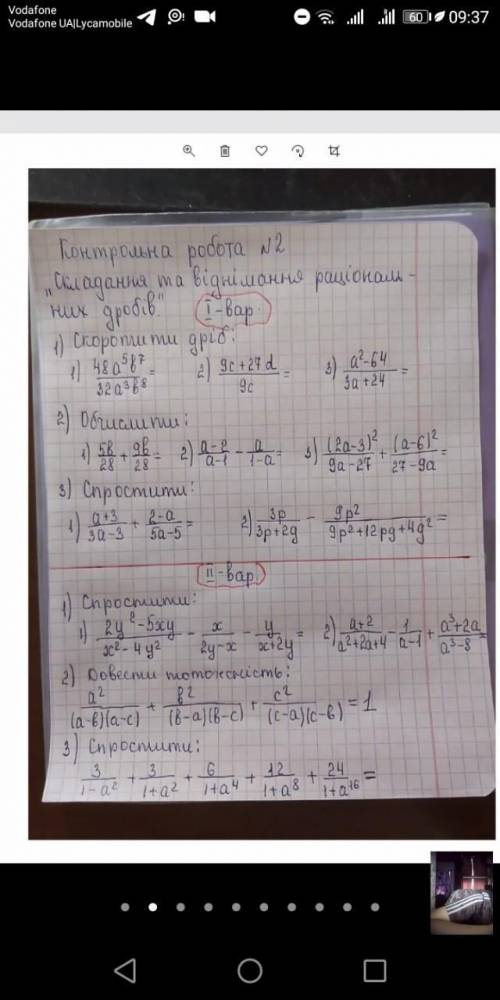 Vodafone
Vodafone UA|Lycamobile
60 09:37
Контрольна робота №2
"Складання та віднімання раціональ-
них дробів." I-вар.
1) Скоротити дріб:
1) 48a⁵b⁷/32a³b⁸ = 2) 9c+27d/9c = 3) a²-64/3a+24 =
2) Обчислити:
1) 5b/28 + 9b/28 = 2) a-2/a-1 - a/1-a = 3) (2a-3)²/9a-27 + (a-6)²/27-9a =
3) Спростити:
1) a+3/3a-3 + 2-a/5a-5 = 2) 3p/3p+2g - 9p²/9p²+12pg+4g² =
II-вар.
1) Спростити:
1) 2y²-5xy/x²-4y² - x/2y-x - y/x+2y = 2) a+2/a²+2a+4 - 1/a-1 + a³+2a/a³-8 =
2) Довести тотожність:
a²/(a-b)(a-c) + b²/(b-a)(b-c) + c²/(c-a)(c-b) = 1
3) Спростити:
3/1-a² + 3/1+a² + 6/1+a⁴ + 12/1+a⁸ + 24/1+a¹⁶ =